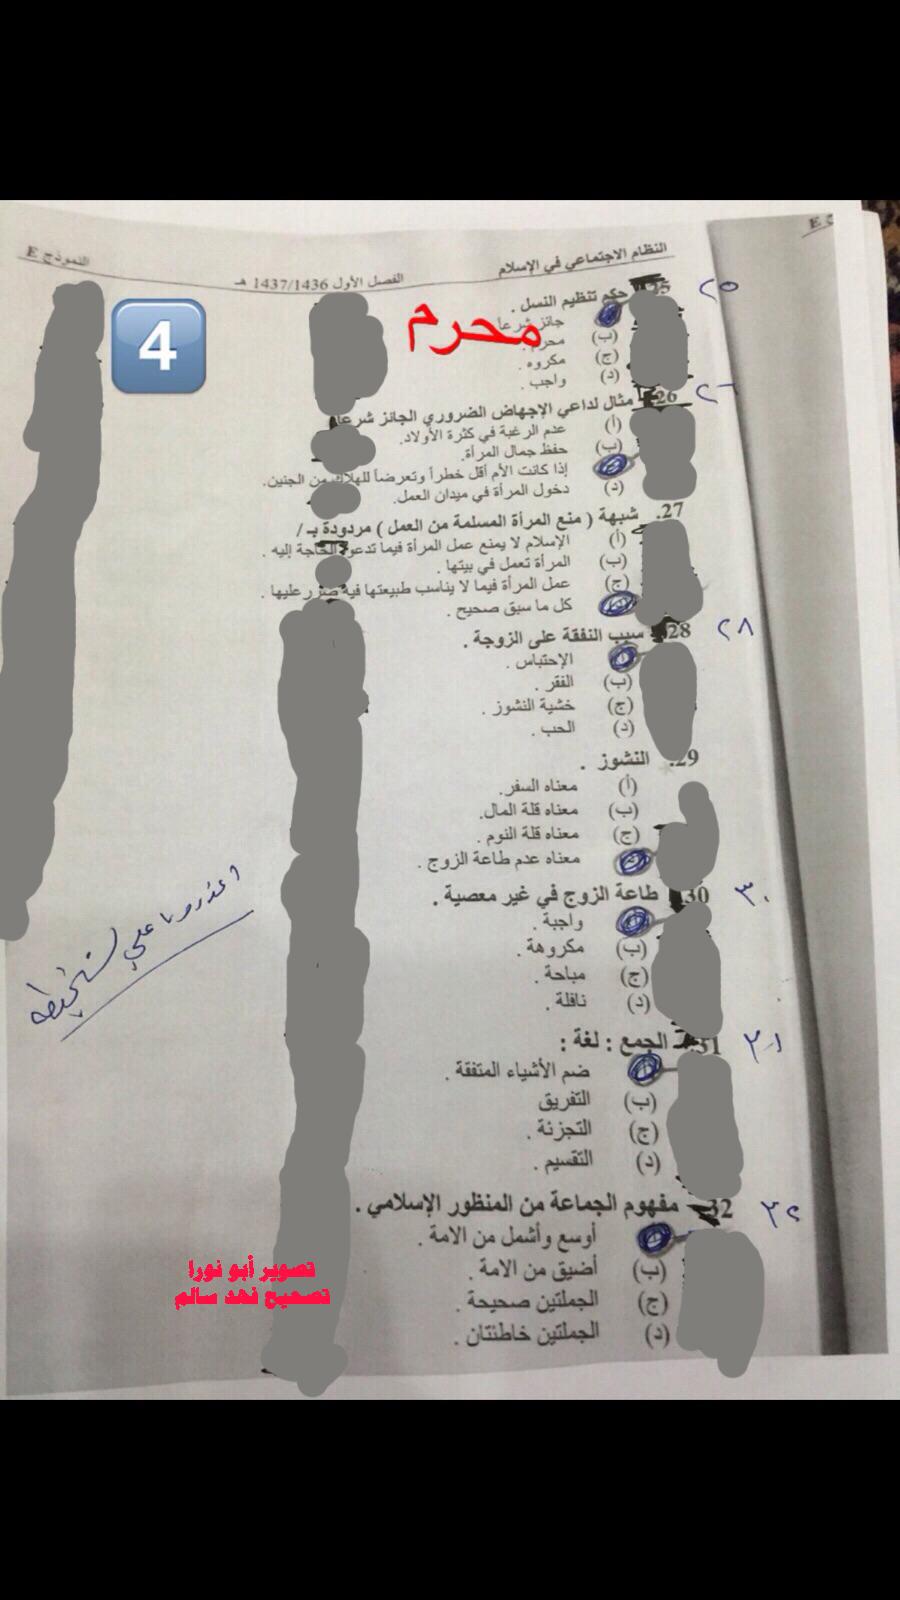 النظام الاجتماعي في الإسلام
الفصل الأول 1437/1436 هـ
النموذج E
4
محرم
٢٥
25. حكم تنظيم النسل .
جائز شرعا
(ب) محرم .
(ج) مكروه .
(د) واجب .
٢٦
26. مثال لداعي الإجهاض الضروري الجائز شرعا
(أ) عدم الرغبة في كثرة الأولاد.
(ب) حفظ جمال المرأة.
إذا كانت الأم أقل خطراً وتعرضاً للهلاك من الجنين.
(د) دخول المرأة في ميدان العمل.
27. شبهة ( منع المرأة المسلمة من العمل ) مردودة بـ /
(أ) الإسلام لا يمنع عمل المرأة فيما تدعو الحاجة إليه .
(ب) المرأة تعمل في بيتها .
(ج) عمل المرأة فيما لا يناسب طبيعتها فيه ضرر عليها .
كل ما سبق صحيح .
٢٨
28. سبب النفقة على الزوجة .
الإحتباس .
(ب) الفقر .
(ج) خشية النشوز .
(د) الحب .
29. النشوز .
(أ) معناه السفر.
(ب) معناه قلة المال.
(ج) معناه قلة النوم .
معناه عدم طاعة الزوج .
٣٠
30 طاعة الزوج في غير معصية .
واجبة .
(ب) مكروهة .
(ج) مباحة .
(د) نافلة .
٣١
31. الجمع : لغة :
ضم الأشياء المتفقة .
(ب) التفريق
(ج) التجزئة .
(د) التقسيم .
٣٢
32 مفهوم الجماعة من المنظور الإسلامي .
أوسع وأشمل من الامة .
(ب) أضيق من الامة .
(ج) الجملتين صحيحة .
(د) الجملتين خاطئتان .
اعذرونا على
تصوير أبو نورا
تصحيح فهد سالم